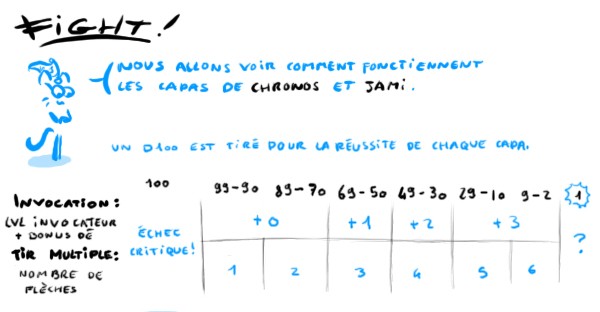 FIGHT!
NOUS ALLONS VOIR COMMENT FONCTIENNENT
LES CAPAS DE CHRONOS ET JAMI.
UN D100 EST TIRÉ POUR LA RÉUSSITE DE CHAQUE CAPA.
100 99-90 89-70 69-50 49-30 29-10 9-2 1
INVOCATION:
LVL INVOCATEUR
+ BONUS DÉ
ÉCHEC
CRITIQUE!
+0 +1 +2 +3 ?
TIR MULTIPLE:
NOMBRE DE
FLÈCHES
1 2 3 4 5 6